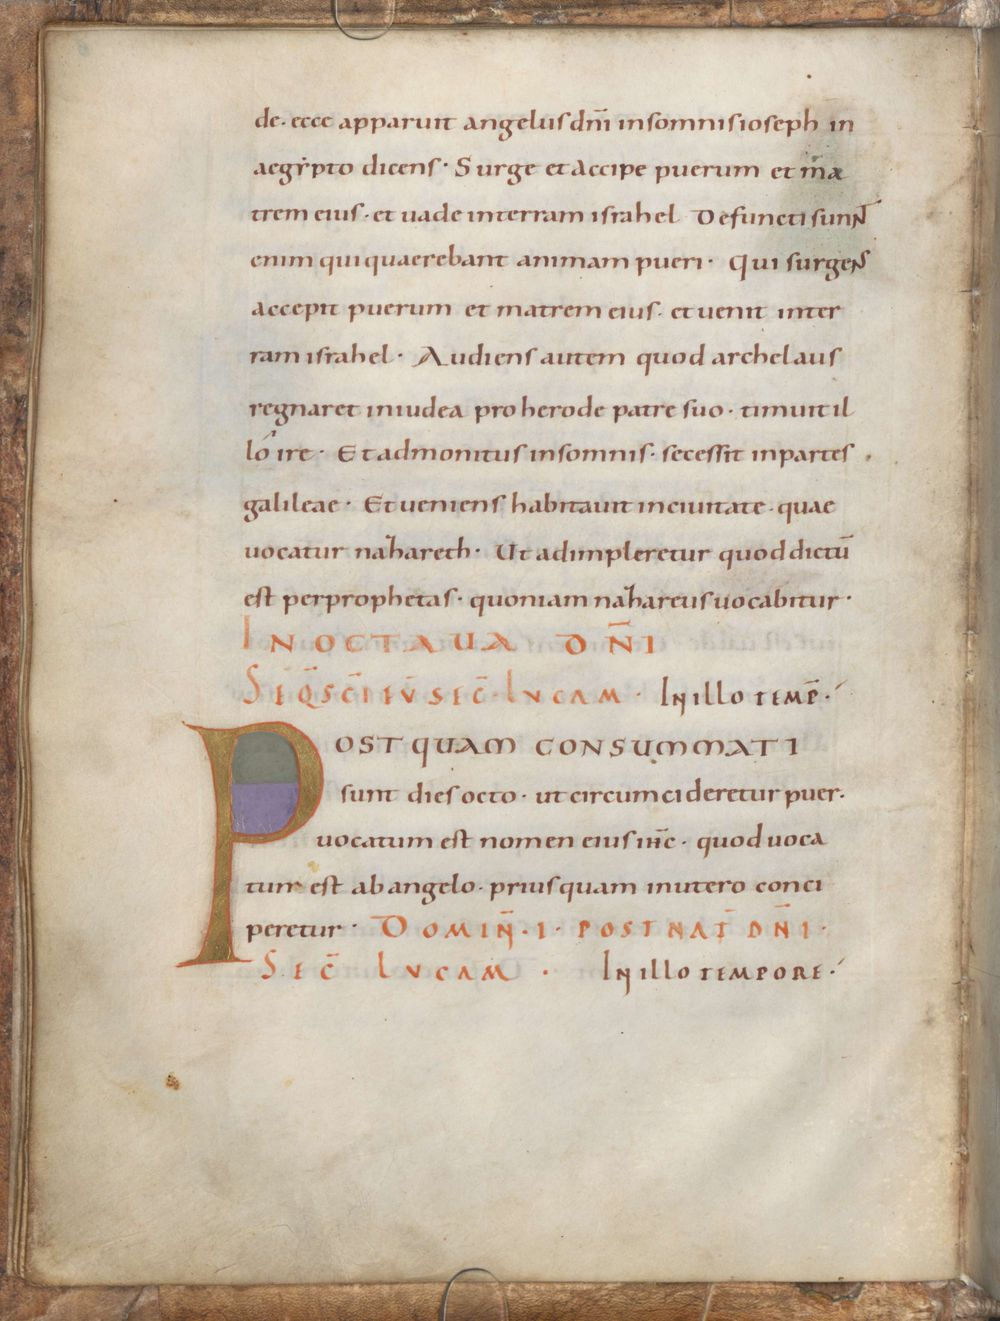 de. ecce apparuit angelus dn̄i in somnis ioseph in
aegẏpto dicens · Surge et accipe puerum et ma
trem eius · et uade in terram israhel Defuncti sunt
enim qui quaerebant animam pueri · Qui surgens
accepit puerum et matrem eius · et uenit in ter
ram israhel · Audiens autem quod archelaus
regnaret in iudea pro herode patre suo · timuit il
lo ire · Et admonitus in somnis · secessit in partes
galileae · Et ueniens habitauit in ciuitate · quae
uocatur nazareth · Ut adimpleretur quod dictū
est per prophetas · quoniam nazareus uocabitur ·
IN OCTAUA DN̄I
SEQ̄ SC̄I EŪ SEC̄ · LUCAM · In illo temp̄ ·
POST QUAM CONSUMMATI
sunt dies octo · ut circumcideretur puer ·
uocatum est nomen eius ih̄c · quod uoca
tum est ab angelo · prius quam in utero conci
peretur · DOMIN̄ · I · POST NAT̄ DN̄I ·
SEC̄ LUCAM · In illo tempore ·